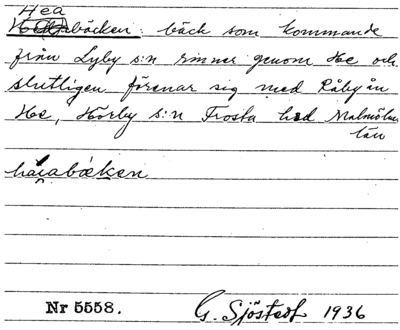 Hea
bäcken: bäck som kommande
från Lyby s:n rinner genom He och
slutligen förenar sig med Råbyån
He, Hörby s:n Frosta hd Malmöhus
län
Nr 5558. G. Sjöstedt 1936